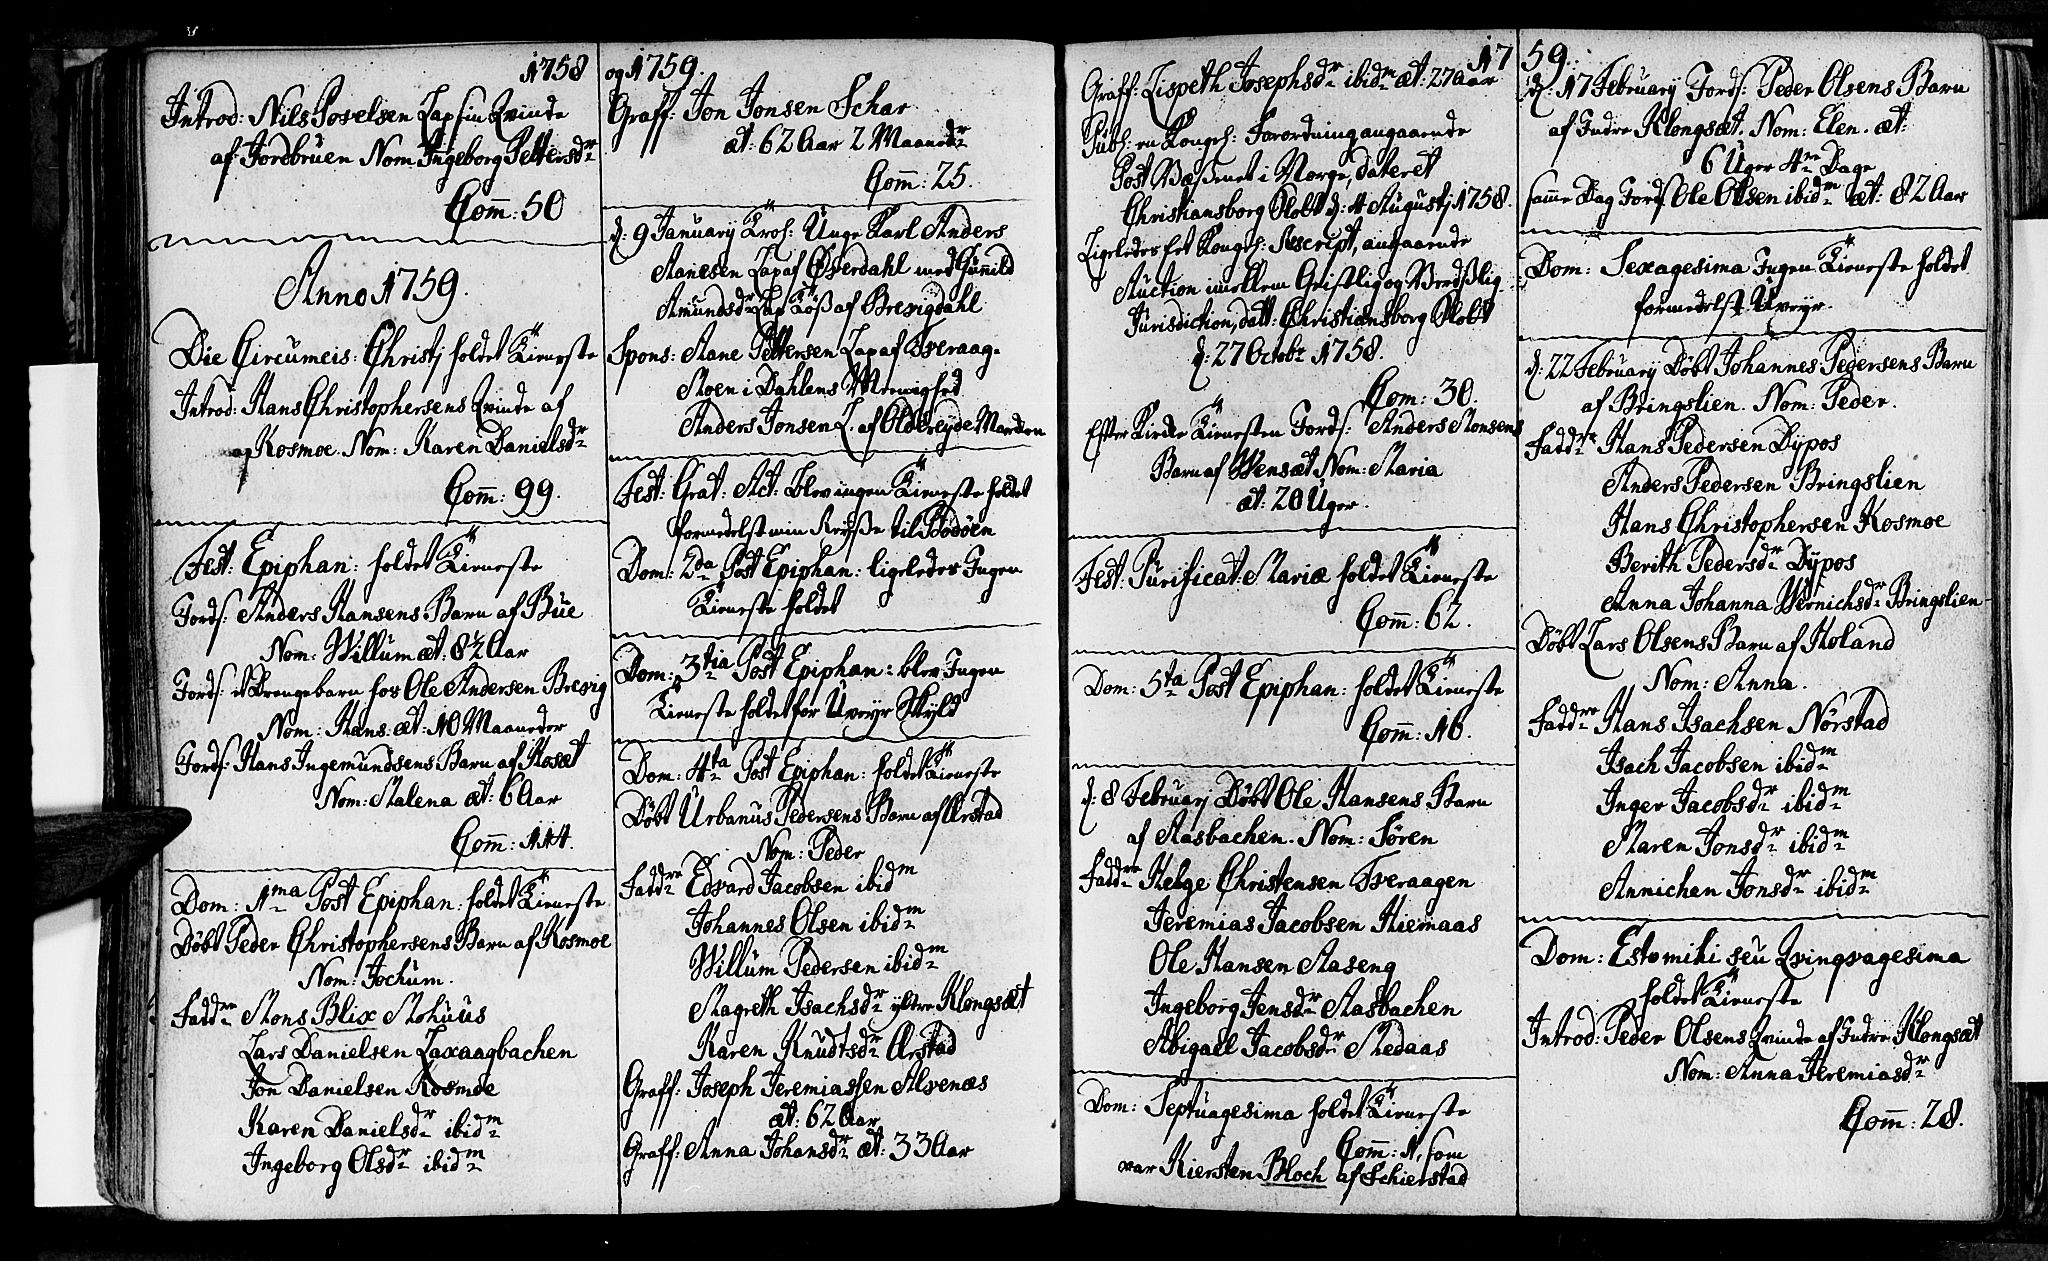 1758
Introd: Nils Povelsen Lap sin Qvinde
af Jordbruen Nom Ingeborg Pettersdr
Com̄: 50
Anno 1759.
Die Circumcis: Christj holdet Tieneste
Introd: Hans Christophersens Qvinde af
Kosmoe. Nom: Karen Danielsdr
Com̄: 99.
Fest: Epiphan: holdet Tieneste
Jords: Anders Hansens Barn af Bue
Nom: Willum æt: 8½ Aar
Jords: et Drengebarn hos Ole Andersen Brevig
Nom: Hans: æt: 10 Maaneder
Jords: Hans Ingemundsens Barn af Hosæt
Nom: Malena æt: 6 Aar
Com̄: 114.
Dom: 1ma Post Epiphan: holdet Tieneste
Døbt Peder Christophersens Barn af Kosmoe
Nom: Jochum.
Faddre Mons Blix Mohuus
Lars Danielsen Laxaagbachen
Jon Danielsen Kosmoe
Karen Danielsdr ibidm
Ingeborg Olsdr ibidm
og 1759.
Graff: Jon Jonsen Schar
æt: 62 Aar 2 Maaneder
Com̄: 25.
d: 9 January Trol: Unge Karl Anders
Aanesen Lap af Øverdahl med Gunild
Amundsdr Lap Tøß af Brevigdahl
Spons: Aane Pettersen Lap af Tveraag-
Moen i Dahlens Menighed
Anders Jonsen L. af Oldereyde Marchen
Fest: Grat: Act: blev ingen Tieneste holdet
formedelst min Reyße til Bodøen
Dom: 2da Post Epiphan: ligeledes Ingen
Tieneste holdet
Dom: 3tia Post Epiphan: blev Ingen
Tieneste holdet for Uveyr Skyld
Dom: 4ta Post Epiphan: holdet Tieneste
Døbt Urbanus Pedersens Barn af Arstad
Nom: Peder
Faddre Edvard Jacobsen ibidm
Johannes Olsen ibidm
Willum Pedersen ibidm
Magreth Isachsdr yttre Klongsæt
Karen Knudtsdr Arstad
Graff: Joseph Jeremiassen Alvenæs
æt: 62 Aar
Graff: Anna Johansdr æt: 33 Aar
17
Graff: Lispeth Josephsdr ibidm æt: 27 Aar
Publ: en Kongel: Forordning angaaende
Post Væßenet i Norge, dateret
Christiansborg Slobt d: 4 Augustj 1758.
Ligeledes Et Kongel: Rescript, angaaende
Auction imellem Geistlig og Verdslig
Jurisdiction, datt: Christiansborg Slobt
d: 27 Octobr 1758.
Com: 30.
Efter Kirke Tienesten Jords: Anders Monsens
Barn af Wensæt Nom: Maria
æt: 20 Uger.
Fest: Purificat: Mariæ holdet Tieneste
Com̄: 62.
Dom: 5ta Post Epiphan: holdet Tieneste
Com̄: 16.
d: 8 Februarj Døbt Ole Hansens Barn
af Aasbachen. Nom: Sören
Faddre Helge Christensen Tveraagen
Jeremias Jacobsen Hiemaas
Ole Hansen Aaseng
Ingeborg Jensdr Aasbachen
Abigael Jacobsdr Medaas
Dom: Septuagesima holdet Tieneste
Com̄: 1, som
var Kiersten Bloch af Schierstad
59.
d: 17 February Jords: Peder Olsens Barn
af Indre Klongsæt. Nom: Elen. æt:
6 Uger 4re Dage
samme Dag Jords Ole Olsen ibidm æt: 82 Aar
Dom: Sexagesima Ingen Tieneste holdet
formedelst Uveyr.
d: 22 February Døbt Johannes Pedersens Barn
af Bringslien. Nom: Peder.
Faddre Hans Pedersen Dypos
Anders Pedersen Bringslien
Hans Christophersen Kosmoe
Berith Pedersdr Dypos
Anna Johanna Wernichsdr Bringslien
Døbt Lars Olsens Barn af Holand
Nom: Anna.
Faddre Hans Isachsen Nörstad
Isach Jacobsen ibidm
Inger Jacobsdr ibidm
Maren Jonsdr ibidm
Annichen Jonsdr ibidm
Dom: Estomihi seu Qvingvagesima
holdet Tieneste
Introd: Peder Olsens Qvinde af Indre Klongsæt
Nom: Anna Jeremiasdr
Com̄: 28.